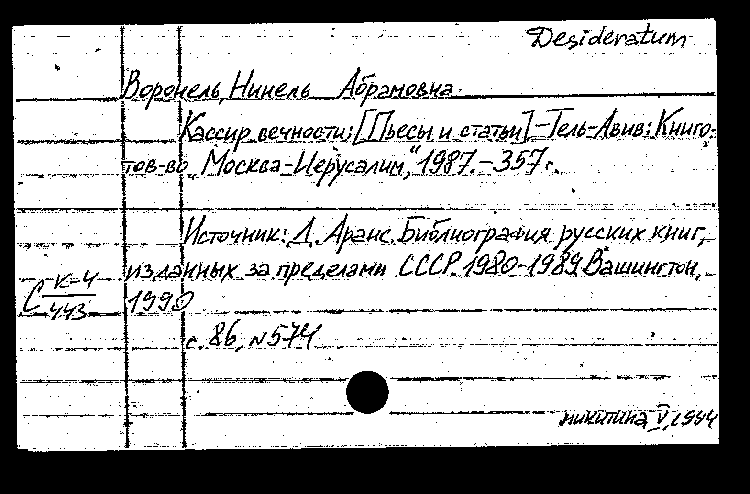 Desideratum
Воронель, Нинель Абрамовна.
Кассир вечности: [Пьесы и статьи] - Тель-Авив: Книго-
тов-во „Москва-Иерусалим," 1987. - 357 с.
Источник: Д. Аранс. Библиография русских книг,
изданных за пределами СССР. 1980-1989. Вашингтон,
С К-4/443 1990
с. 86, N 574
Никитина V, 1994